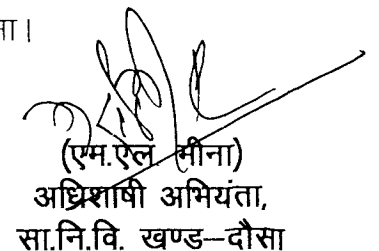 ा।
(एम.ऐल. मीना)
अधिशाषी अभियंता,
सा.नि.वि. खण्ड--दौसा